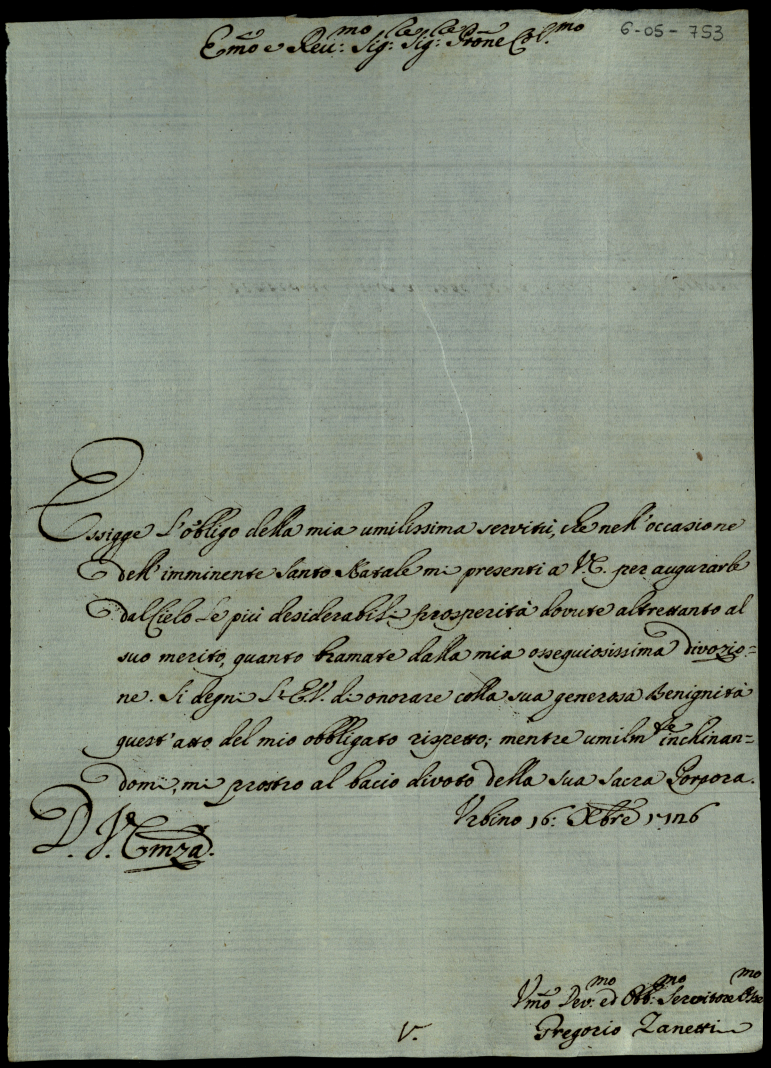 6-05-753
Emo e Reu:mo Sig:re Sig:re Prone Col.mo
Essigge l'obligo della mia umilissima servitù, che nell'occasione
dell'imminente Santo Natale mi presenti a V.E. per augurarle
dal Cielo le più desiderabili prosperità dovute altrettanto al
suo merito, quanto bramate dalla mia ossequiosissima divozio=
ne. Si degni l'E.V. di onorare colla sua generosa Benignità
quest'atto del mio obbligato rispetto; mentre umilmte inchinan=
domi, mi prostro al bacio divoto della sua Sacra Porpora.
Urbino 16: Xbre 1726
D. V. Emza.
Vmo Dev:mo ed Obb:mo Servitore Osse mo
Gregorio Zanetti
V.